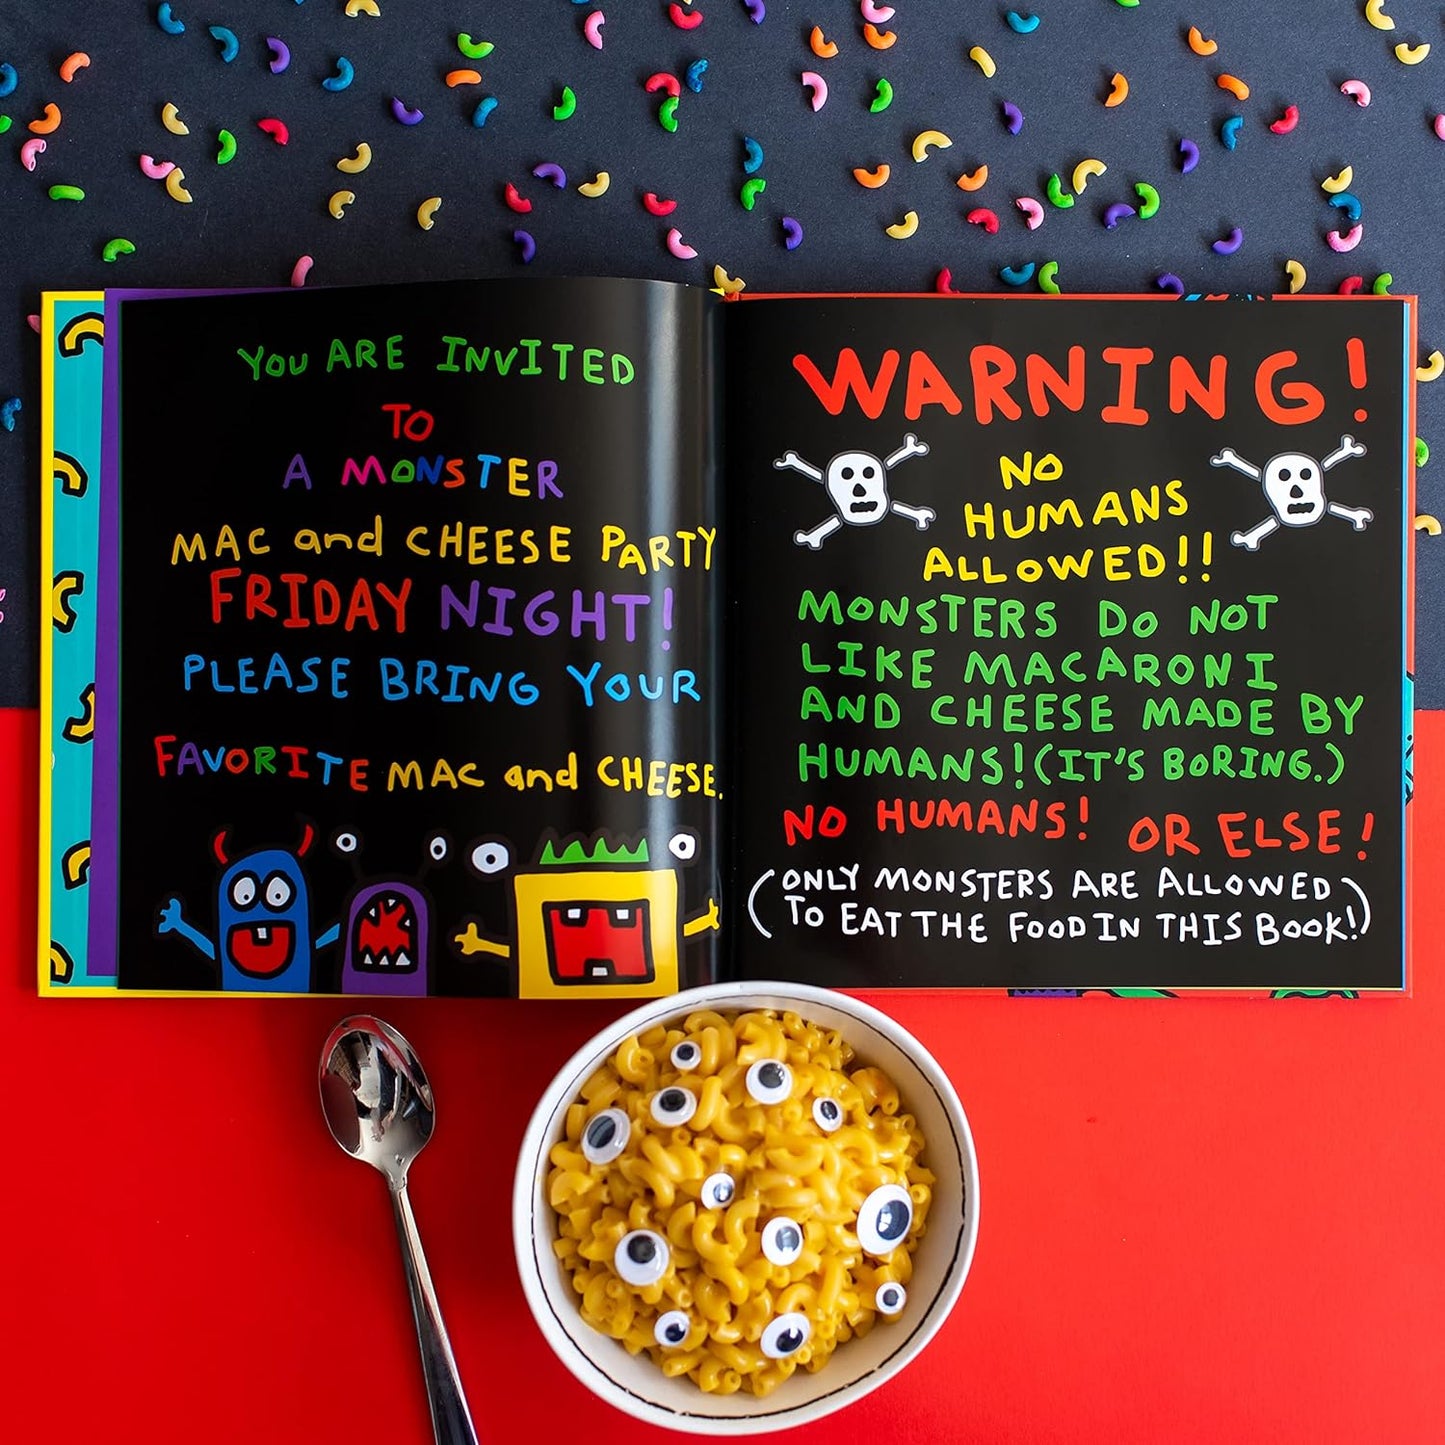 YOU ARE INVITED
TO
A MONSTER
MAC and CHEESE PARTY
FRIDAY NIGHT!
PLEASE BRING YOUR
FAVORITE MAC and CHEESE.
WARNING!
NO
HUMANS
ALLOWED!!
MONSTERS DO NOT
LIKE MACARONI
AND CHEESE MADE BY
HUMANS! (IT'S BORING.)
NO HUMANS! OR ELSE!
(ONLY MONSTERS ARE ALLOWED
TO EAT THE FOOD IN THIS BOOK!)